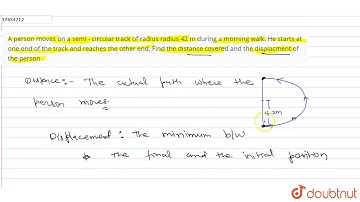 17654712
A person moves on a semi - circular track of radius radius 42 m during a morning walk. He starts at
one end of the track and reaches the other end. Find the distance covered and the displacment of
the person .
Distance:- The actual path where the
person moves
42m
Displacement : the minimum b/w
the final and the initial position
doubtnut